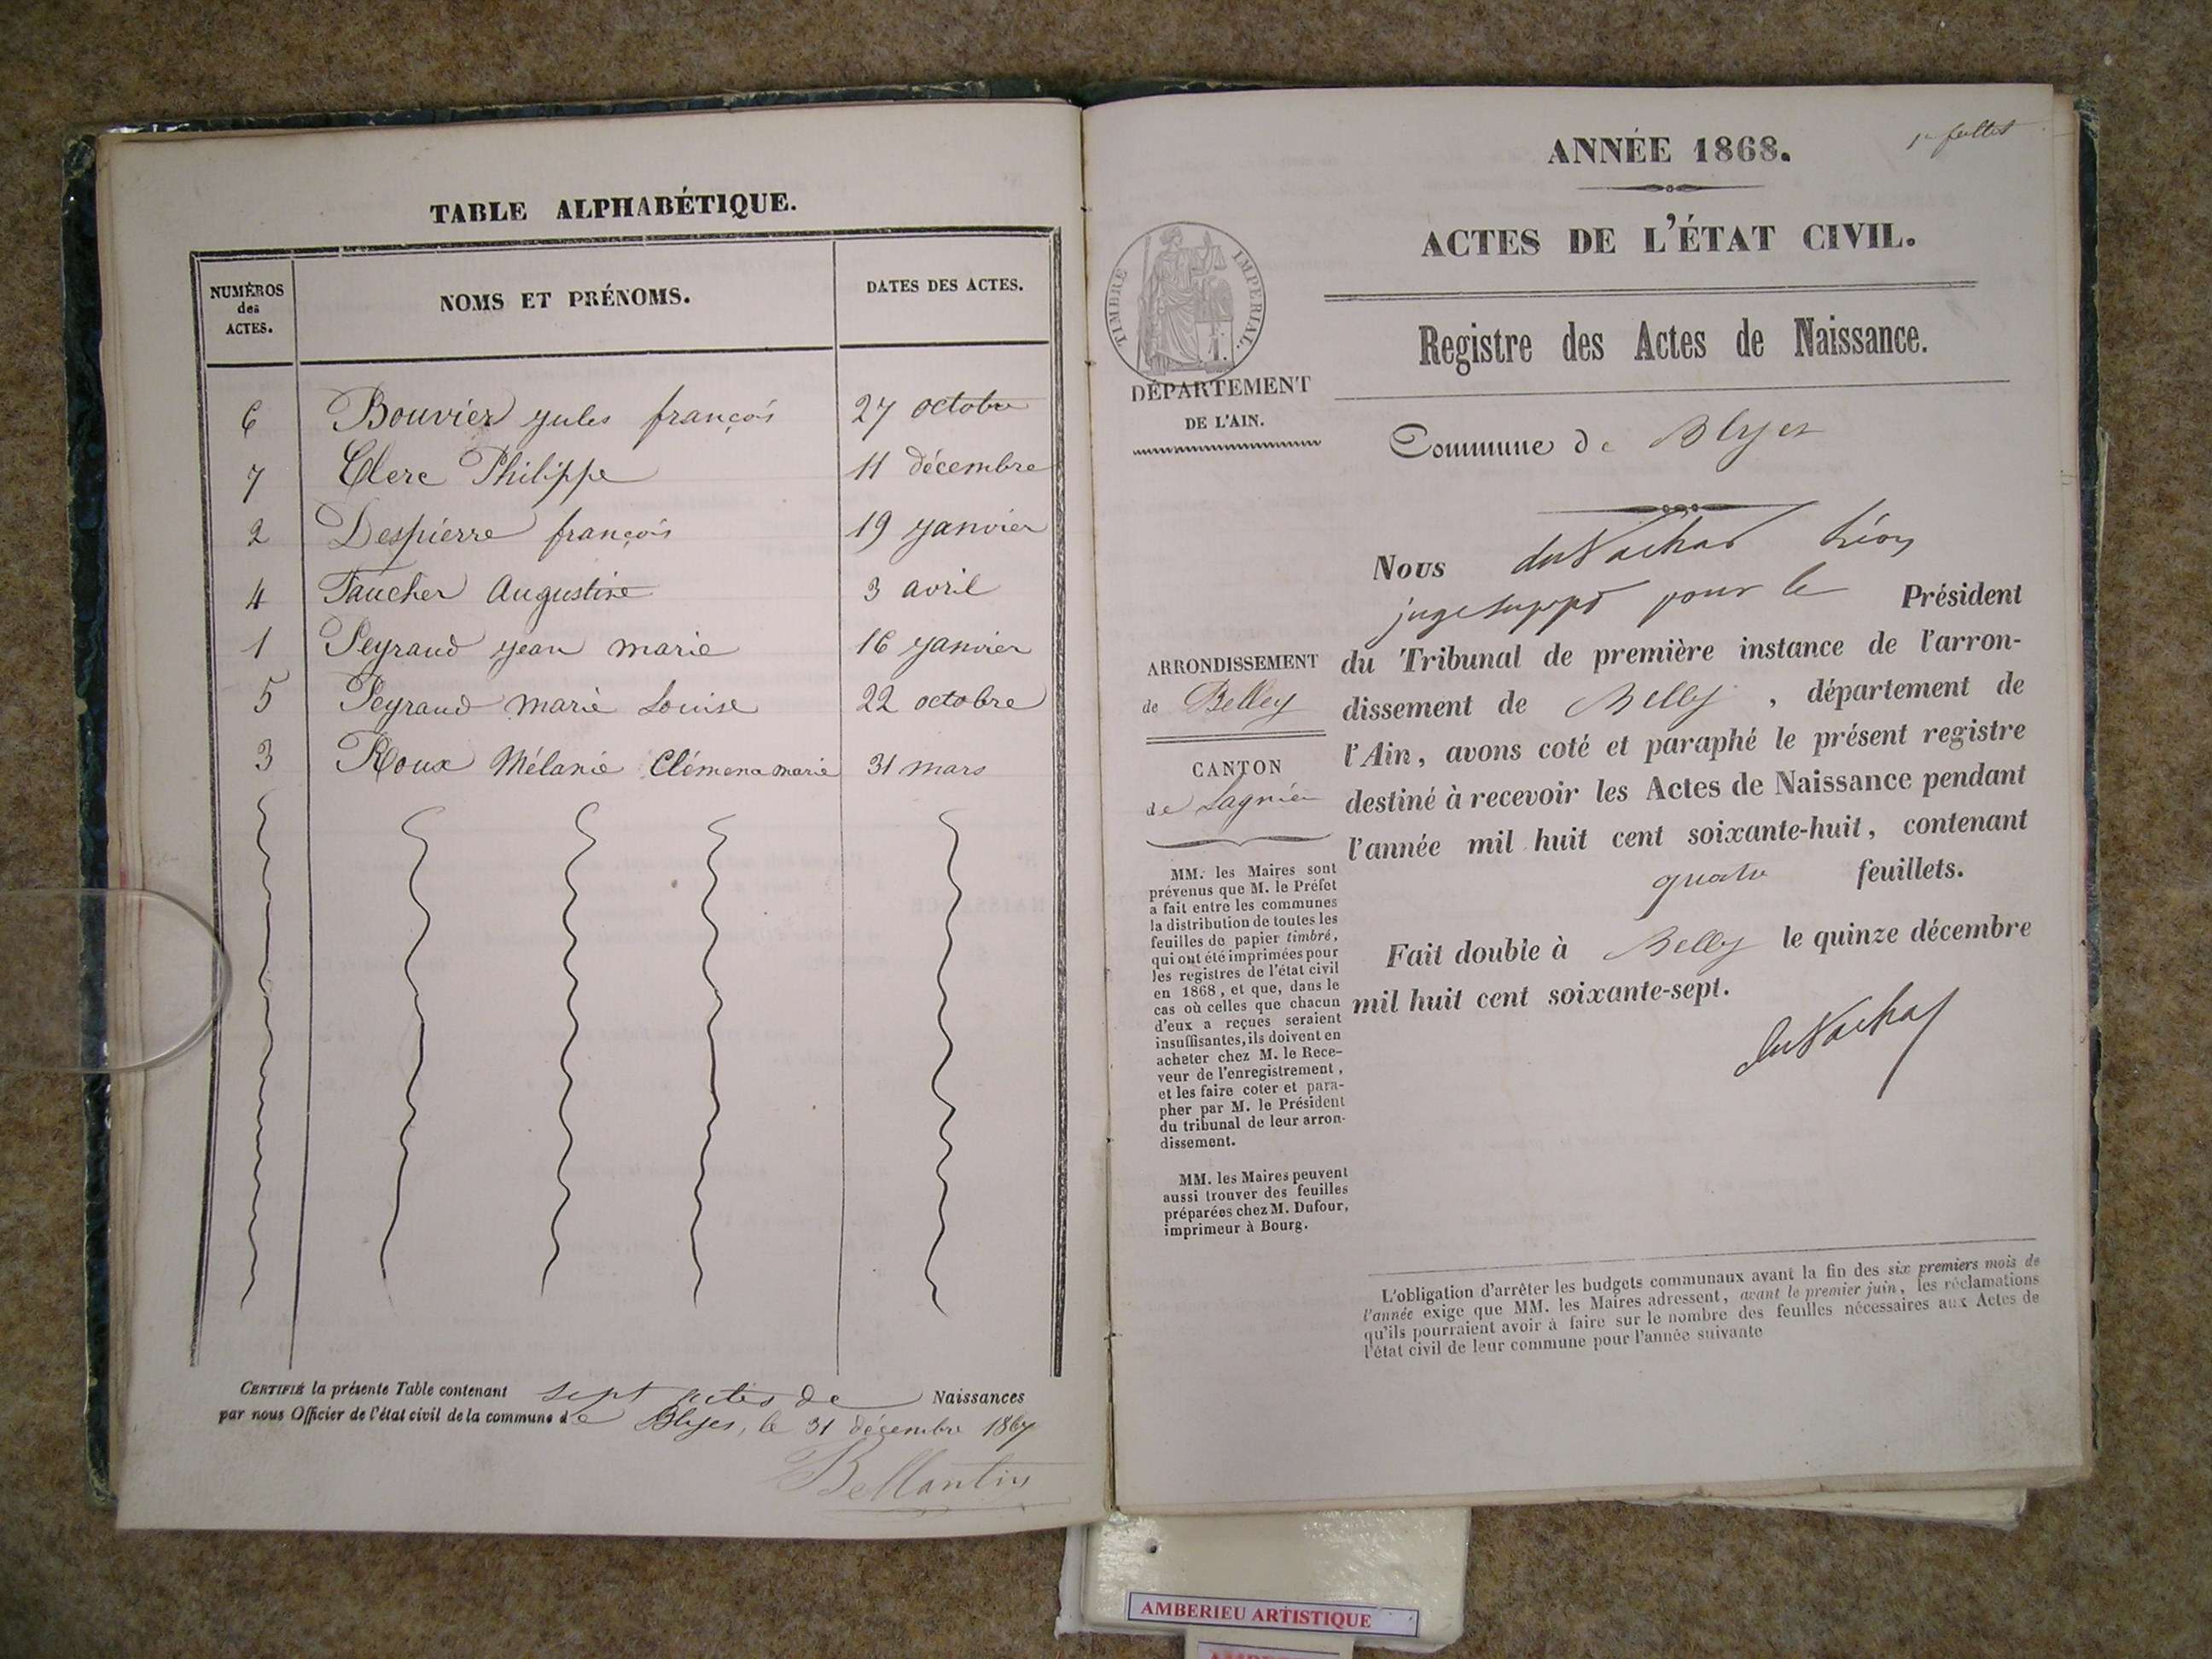 TABLE ALPHABÉTIQUE.
NUMÉROS des ACTES.
NOMS ET PRÉNOMS.
DATES DES ACTES.
6 Bouvier Jules françois 27 octobre
7 Clerc Philippe 11 décembre
2 Despierre françois 19 Janvier
4 Faucher Augustine 3 avril
1 Peyraud Jean marie 16 Janvier
5 Peyraud marie Louise 22 octobre
3 Roux Mélanie Clémena marie 31 mars
CERTIFIÉ la présente Table contenant sept actes de Naissances
par nous Officier de l'état civil de la commune de Blyes, le 31 décembre 1867
Bellantin
1er feuillet
ANNÉE 1868.
ACTES DE L'ÉTAT CIVIL.
Registre des Actes de Naissance.
Commune de Blyes
TIMBRE IMPERIAL.
DÉPARTEMENT
DE L'AIN.
ARRONDISSEMENT
de Belley
CANTON
de Lagnieu
MM. les Maires sont
prévenus que M. le Préfet
a fait entre les communes
la distribution de toutes les
feuilles de papier timbré,
qui ont été imprimées pour
les registres de l'état civil
en 1868, et que, dans le
cas où celles que chacun
d'eux a reçues seraient
insuffisantes, ils doivent en
acheter chez M. le Rece-
veur de l'enregistrement,
et les faire coter et para-
pher par M. le Président
du tribunal de leur arron-
dissement.
MM. les Maires peuvent
aussi trouver des feuilles
préparées chez M. Dufour,
imprimeur à Bourg.
Nous duVachat Léon
juge suppt pour le Président
du Tribunal de première instance de l'arron-
dissement de Belley, département de
l'Ain, avons coté et paraphé le présent registre
destiné à recevoir les Actes de Naissance pendant
l'année mil huit cent soixante-huit, contenant
quatre feuillets.
Fait double à Belley le quinze décembre
mil huit cent soixante-sept.
duVachat
L'obligation d'arrêter les budgets communaux avant la fin des six premiers mois de
l'année exige que MM. les Maires adressent, avant le premier juin, les réclamations
qu'ils pourraient avoir à faire sur le nombre des feuilles nécessaires aux Actes de
l'état civil de leur commune pour l'année suivante
AMBERIEU ARTISTIQUE